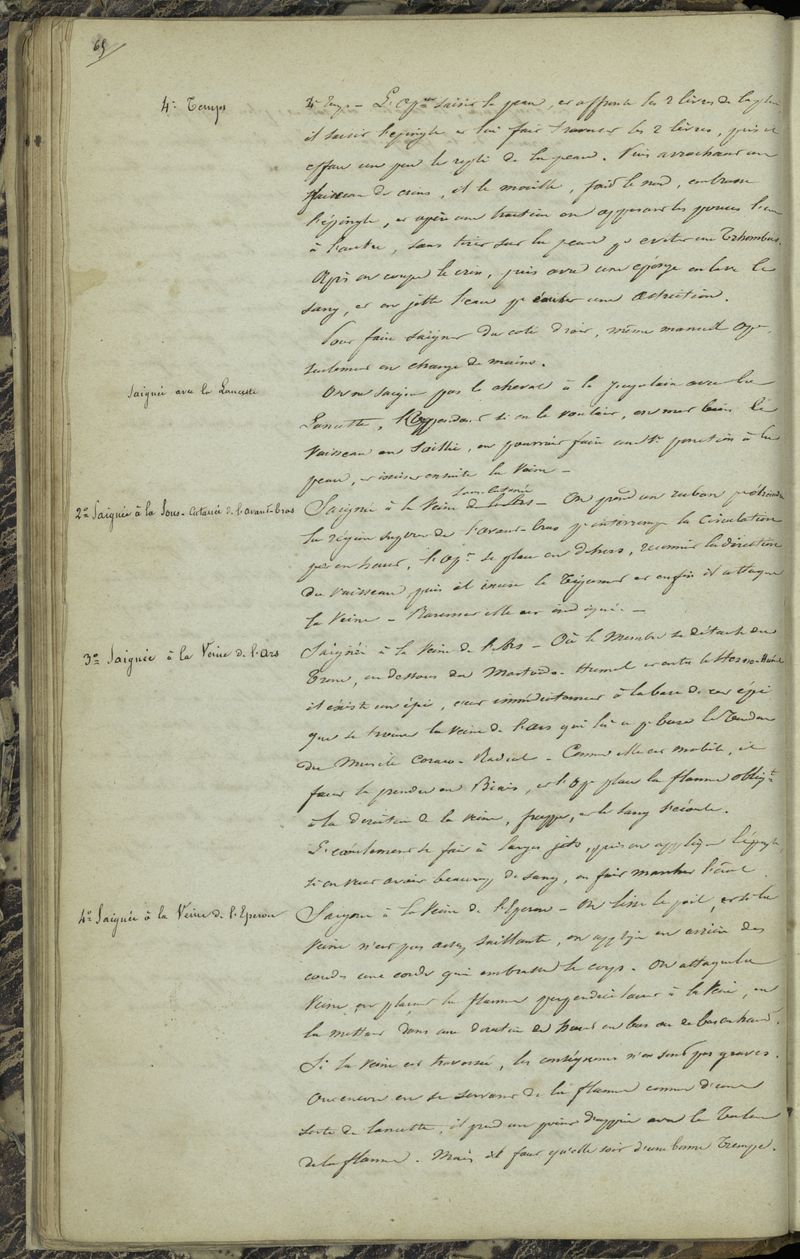 65
4e Temps
4e Temps - L'opr saisit la peau, et affronte les 2 lèvres de la plaie
il saisit l'épingle et lui fait traverser les 2 lèvres, puis il
efface un peu le repli de la peau. Puis arrachant un
faisceau de crins, il le mouille, fait le nœud, embrasse
l'épingle, et opère une traction en opposant les pouces l'un
à l'autre, sans tirer sur la peau pr éviter un Trhombus.
Après on coupe le crin, puis avec une éponge on lave le
sang, et on jette l'eau pr éviter une
Pour faire saigner du coté droit, même manuel opre
seulement on change de mains.
Saignée avec la Lancette
On ne saigne pas le cheval à la jugulaire avec la
Lancette, Cependant si on le voulait, on met bien le
vaisseau en saillie, on pourrait faire une ponction à la
peau, et inciser ensuite la veine -
2e Saignée à la Sous-Cutanée de l'avant-bras
Saignée à la Veine Sous Cutanée - On prend un ruban pr étreindre
la région supre de l'avant-bras pr interrompre la circulation
par en haut, l'opr se place en dehors, reconnait la direction
du vaisseau, puis il incise le Tégument et enfin il attaque
la veine - Rarement elle est indiquée -
3e Saignée à la Veine de l'Ars
Saignée à la Veine de l'Ars - Où le Membre se détache du
Tronc, en dessous du Mastoido-Huméral et entre le Sterno-Huméral
il existe un épi, c'est immédiatement à la base de cet épi
que se trouve la veine de l'ars qui là a pr base le Tendon
du Muscle Coraco-Radial - Comme elle est mobile, il
faut la prendre en Biais, et l'opr place la flamme obliqt
à la direction de la veine, frappe, et le sang s'écoule.
L'écoulement se fait à larges jets, puis on applique l'épingle,
si on veut avoir beaucoup de sang, on fait marcher l'animal
4e Saignée à la Veine de l'Eperon
Saignée à la Veine de l'Eperon - On lisse le poil, et si la
veine n'est pas assez saillante, on applique en arrière des
coudes une corde qui embrasse le corps. On attaque la
Veine, en plaçant la flamme perpendiculaire à la Veine, en
la mettant dans une direction de haut en bas ou de bas en haut.
Si la veine est traversée, les conséquences n'en sont pas graves.
Ou encore en se servant de la flamme comme d'une
sorte de lancette, il prend un point d'appui avec le Talon
de la flamme. Mais il faut qu'elle soit d'une bonne Trempe.